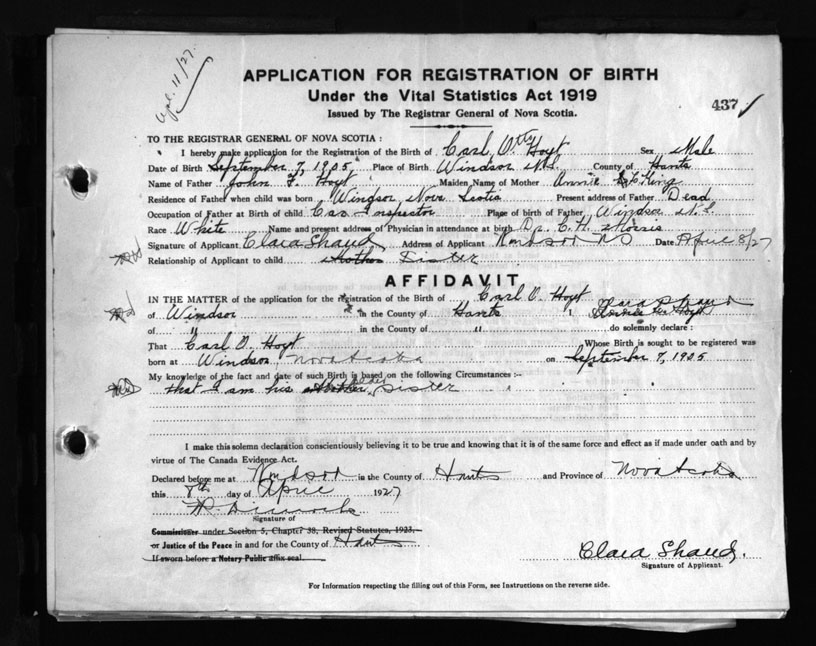 Apl. 11/27.
APPLICATION FOR REGISTRATION OF BIRTH
Under the Vital Statistics Act 1919
437
Issued by The Registrar General of Nova Scotia.
TO THE REGISTRAR GENERAL OF NOVA SCOTIA :
I hereby make application for the Registration of the Birth of Carl Otty Hoyt Sex Male
Date of Birth September 7, 1905 Place of Birth Windsor N.S. County of Hants
Name of Father John F. Hoyt Maiden Name of Mother Annie King
Residence of Father when child was born Windsor, Nova Scotia Present address of Father Dead
Occupation of Father at Birth of child Car Inspector Place of birth of Father Windsor N.S.
Race White Name and present address of Physician in attendance at birth Dr. C. H. Morris
Signature of Applicant Clara Shand Address of Applicant Windsor NS Date April 8/27
Relationship of Applicant to child Mother Sister
AFFIDAVIT
IN THE MATTER of the application for the registration of the Birth of Carl O. Hoyt
of Windsor in the County of Hants I Clara Shand
of " in the County of " do solemnly declare :
That Carl O. Hoyt Whose Birth is sought to be registered was
born at Windsor Nova Scotia on September 7, 1905
My knowledge of the fact and date of such Birth is based on the following Circumstances :-
that I am his Mother older Sister
I make this solemn declaration conscientiously believing it to be true and knowing that it is of the same force and effect as if made under oath and by
virtue of The Canada Evidence Act.
Declared before me at Windsor in the County of Hants and Province of Nova Scotia
this 8th day of April 1927
Signature of
Commissioner under Section 5, Chapter 38, Revised Statutes, 1923.
or Justice of the Peace in and for the County of Hants
If sworn before a Notary Public affix seal.
Clara Shand.
Signature of Applicant.
For Information respecting the filling out of this Form, see Instructions on the reverse side.